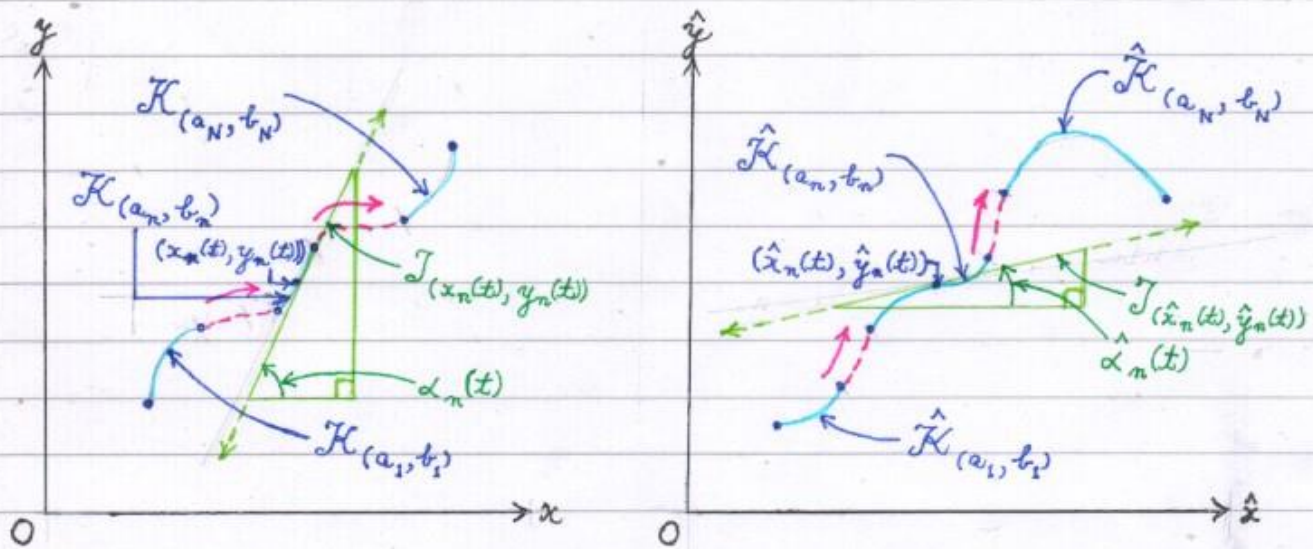 y
𝒦(a_N, b_N)
𝒦(a_n, b_n)
(x_n(t), y_n(t))
𝒥(x_n(t), y_n(t))
α_n(t)
𝒦(a_1, b_1)
O
x
ŷ
𝒦̂(a_N, b_N)
𝒦̂(a_n, b_n)
(x̂_n(t), ŷ_n(t))
𝒥(x̂_n(t), ŷ_n(t))
α̂_n(t)
𝒦̂(a_1, b_1)
O
x̂